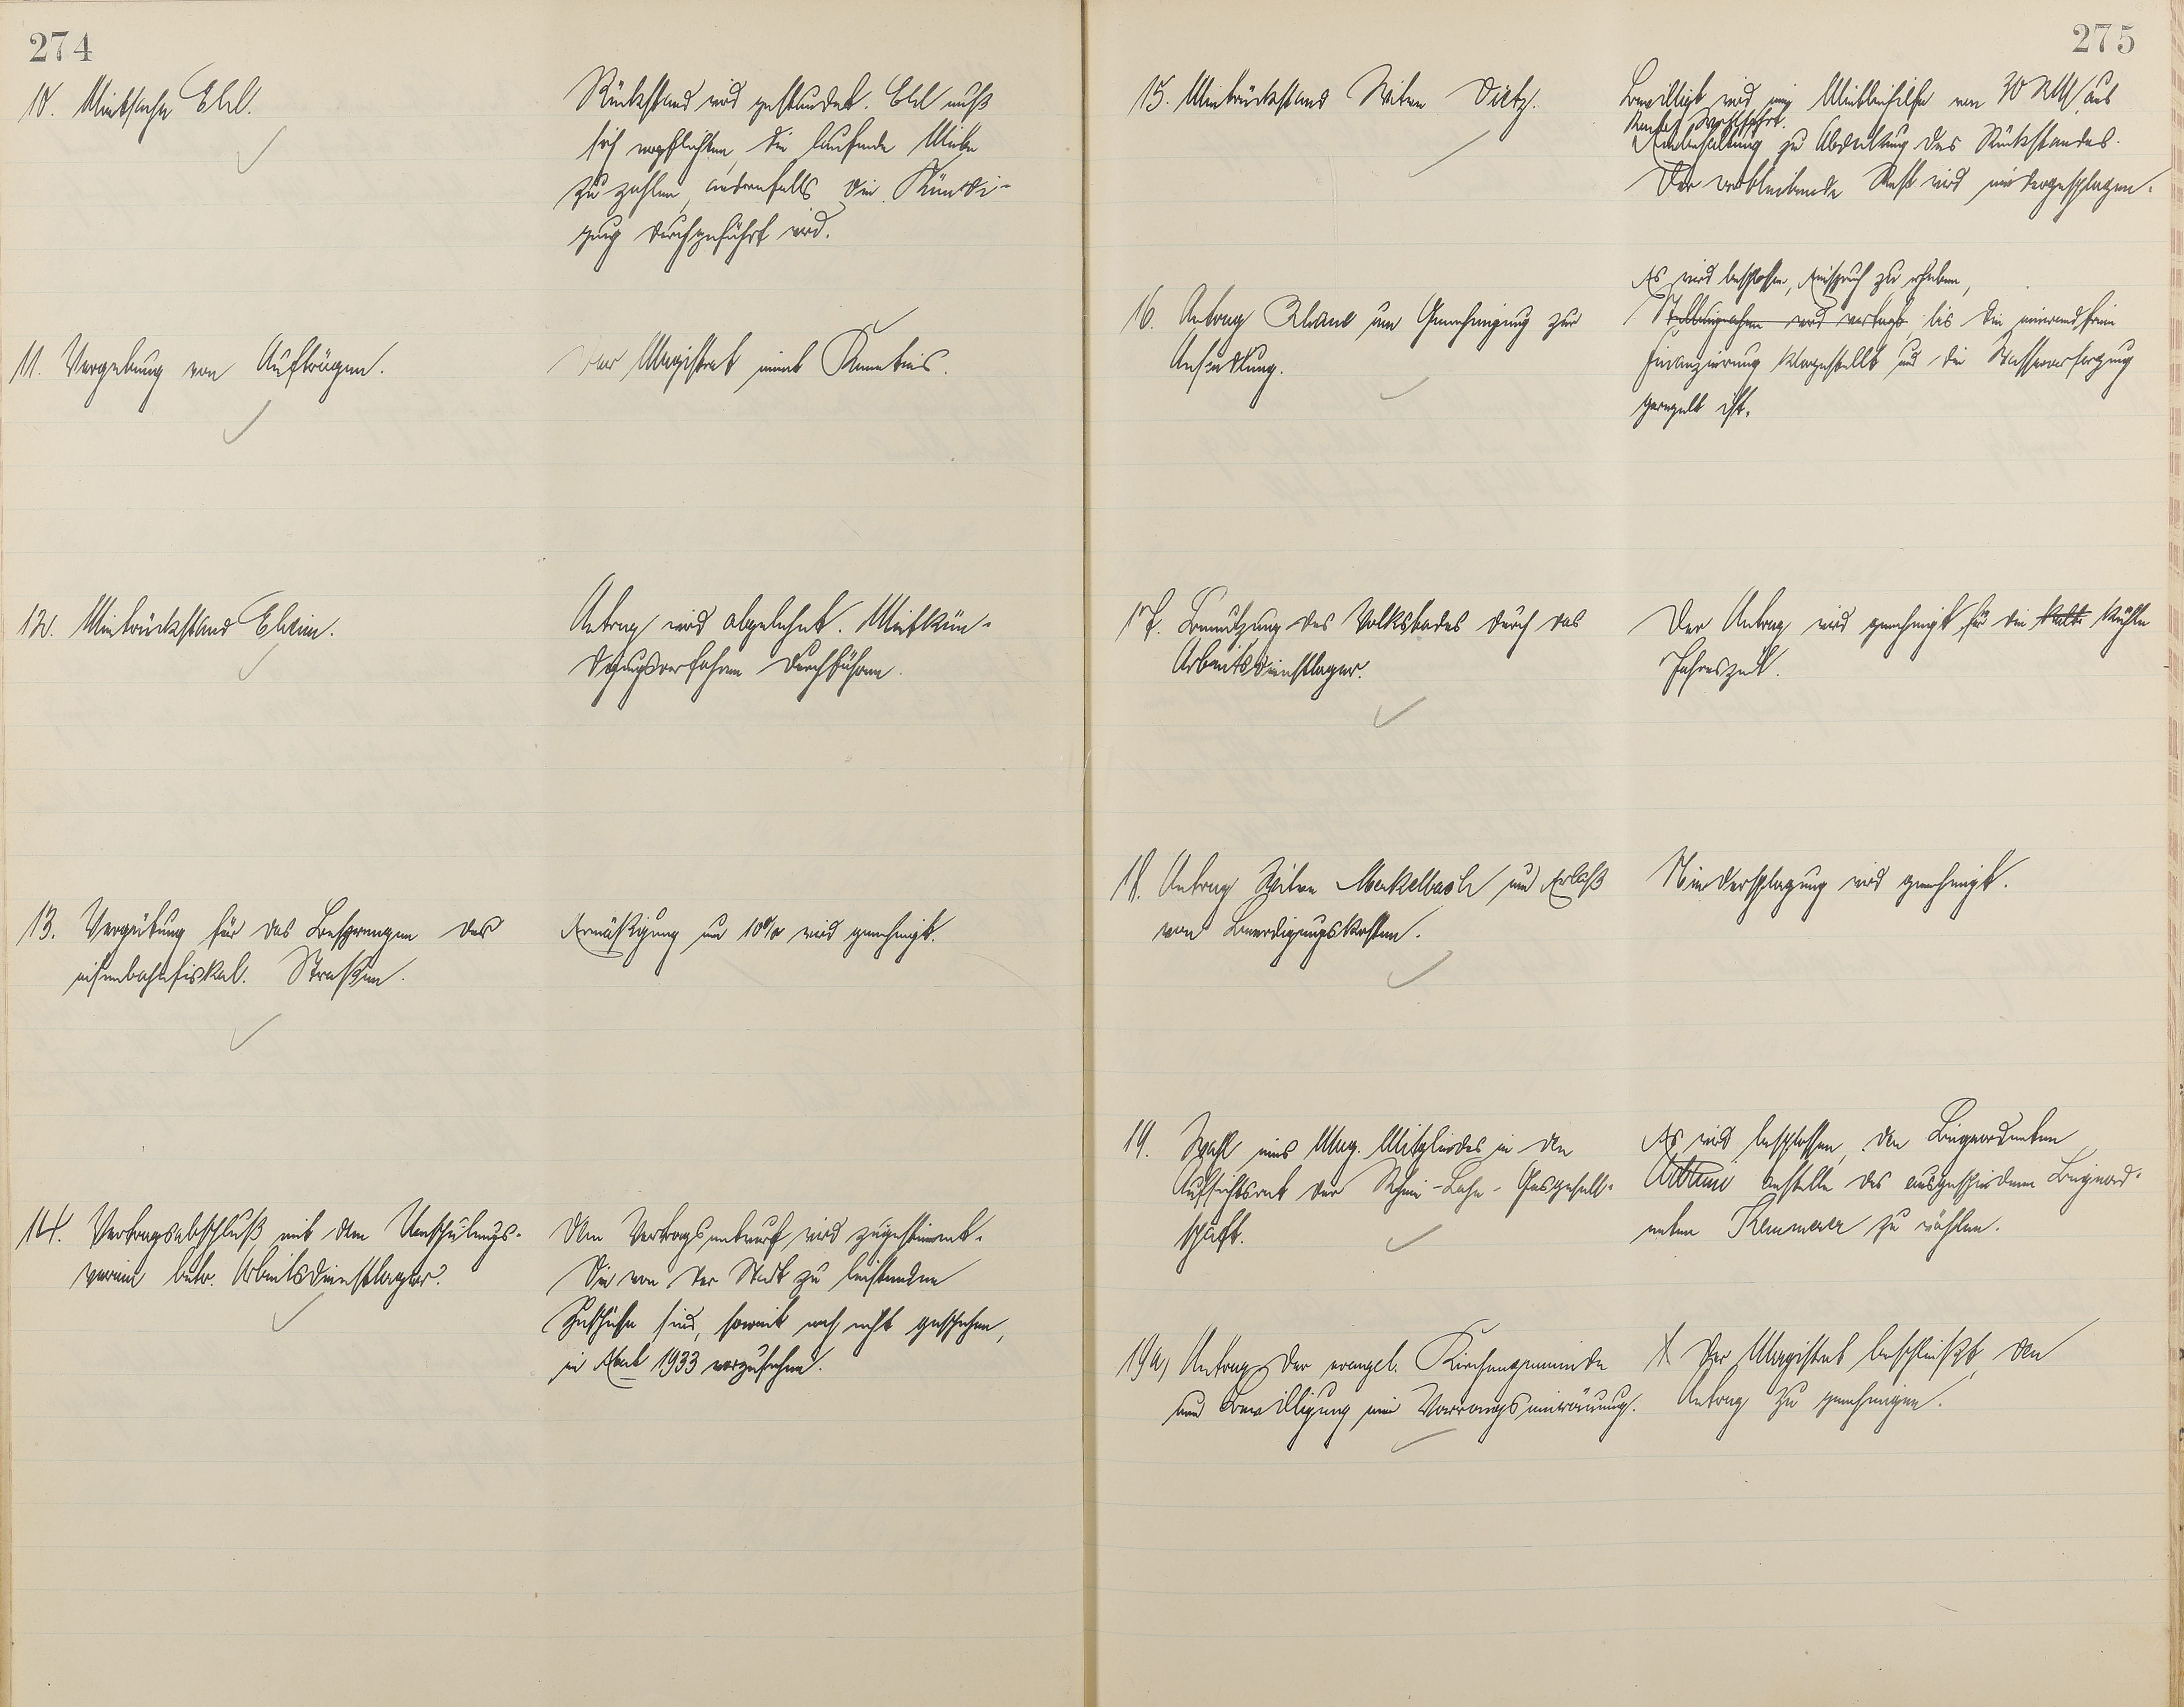 274
10. Mietsache Ehl.
Rückstand wird gestundet. Ehl muß
sich verpflichten, die laufende Miete
zu zahlen, andernfalls die Kündi-
gung durchgeführt wird.
11. Vergebung von Aufträgen.
Der Magistrat nimmt Kenntnis.
12. Mietrückstand
Antrag wird abgelehnt. Mietkün-
digungsverfahren durchführen.
13. Vergütung für das Besprengen der
eisenbahnfiskal. Straßen.
Ermäßigung um 10% wird genehmigt.
14. Vertragsabschluß mit dem Umschulungs-
verein betr. Arbeitsdienstlager.
Dem Vertragsentwurf wird zugestimmt.
Die von der Stadt zu leistenden
Zuschüsse sind, soweit noch nicht geschehen,
im Etat 1933 vorzusehen.
275
15. Mietrückstand Witwe Dietz.
Bewilligt wird eine Mietbeihilfe von 30 RM aus
Wohlfahrt.
zu Abdeckung des Rückstandes.
Der verbleibende Rest wird niedergeschlagen.
16. Antrag um Genehmigung zur
Ansiedlung.
Es wird beschlossen, Einspruch zu erheben,
Stellungnahme wird vertagt bis die einwandfreie
Finanzierung klargestellt und die Wasserversorgung
geregelt ist.
17. Benutzung des Volksbades durch das
Arbeitsdienstlager.
Der Antrag wird genehmigt für die kalte kühle
Jahreszeit.
18. Antrag Witwe Merkelbach um Erlaß
von Beerdigungskosten.
Niederschlagung wird genehmigt.
19. Wahl eines Mag. Mitgliedes in den
Aufsichtsrat der Rhein-Lahn-Gasgesell-
schaft.
Es wird beschlossen, den Beigeordneten
anstelle des ausgeschiedenen Beigeord-
neten Kemmerer zu wählen.
19a) Antrag der evangel. Kirchengemeinde
um Bewilligung einer Vorrangseinräumung.
Der Magistrat beschließt, den
Antrag zu genehmigen.